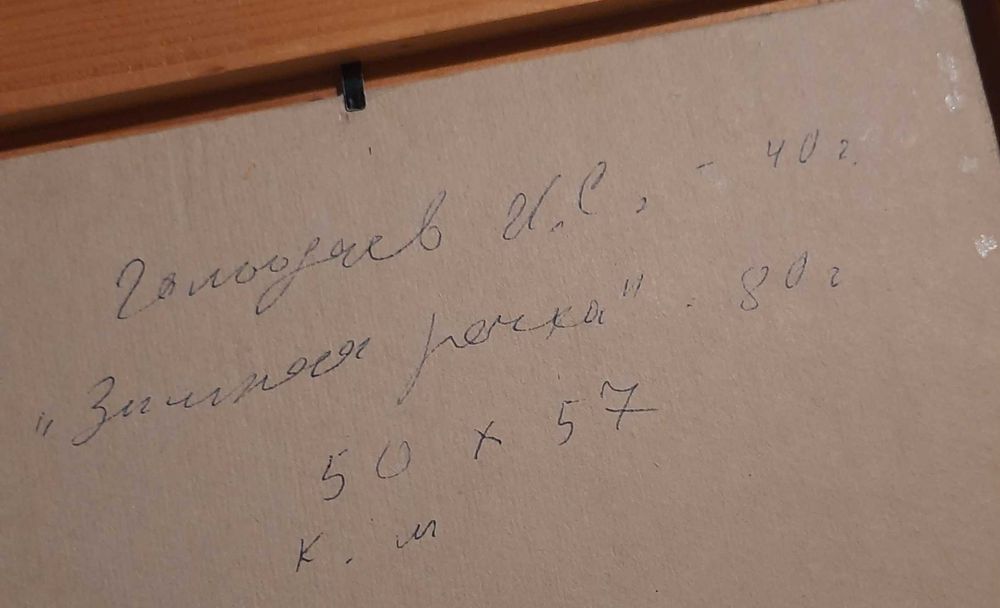 Голодяев И.С. - 40 г.
"Зимняя речка" - 80 г
50 x 57
к. м